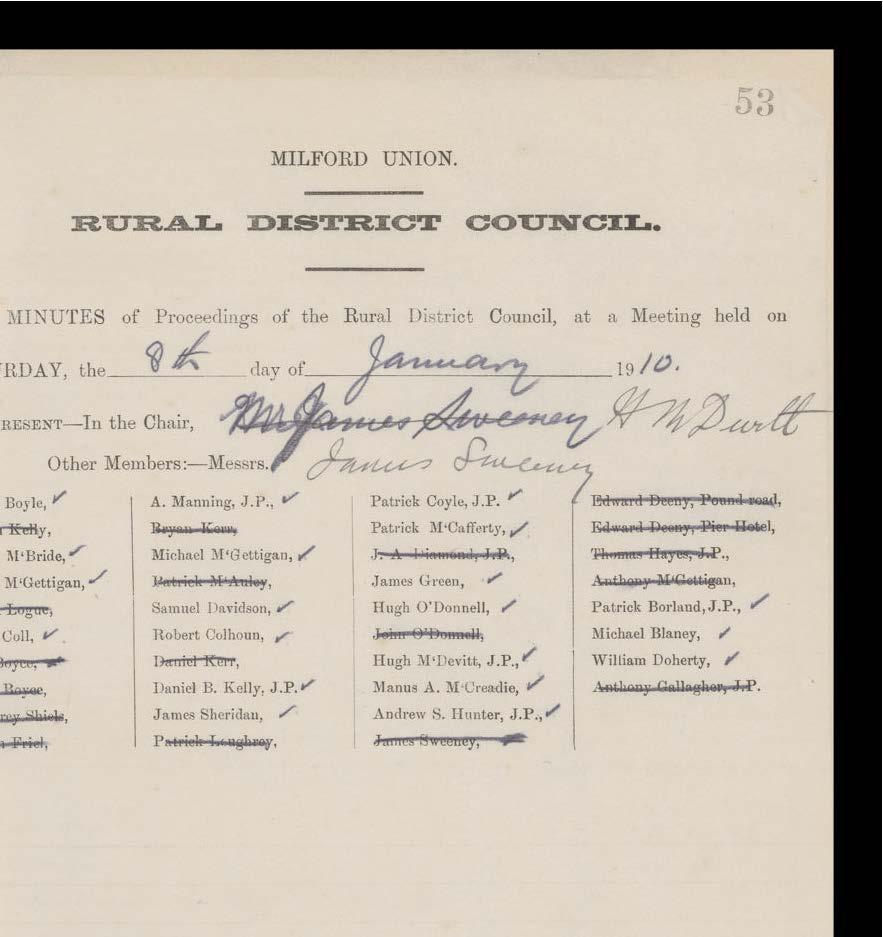 53
MILFORD UNION.
RURAL DISTRICT COUNCIL.
MINUTES of Proceedings of the Rural District Council, at a Meeting held on
RDAY, the 8th day of January 1910.
RESENT—In the Chair, Mr James Sweeney H McDevitt
Other Members:—Messrs. James Sweeney
Boyle, ✓ A. Manning, J.P., ✓ Patrick Coyle, J.P. ✓ Edward Deeny, Pound road,
Kelly, Bryan Kerr, Patrick M'Cafferty, ✓ Edward Deeny, Pier Hotel,
M'Bride, ✓ Michael M'Gettigan, ✓ J. A. Diamond, J.P., Thomas Hayes, J.P.,
M'Gettigan, ✓ Patrick M'Auley, James Green, ✓ Anthony M'Gettigan,
Logue, Samuel Davidson, ✓ Hugh O'Donnell, ✓ Patrick Borland, J.P., ✓
Coll, ✓ Robert Colhoun, ✓ John O'Donnell, Michael Blaney, ✓
Boyce, Daniel Kerr, Hugh M'Devitt, J.P., ✓ William Doherty, ✓
Boyce, Daniel B. Kelly, J.P. ✓ Manus A. M'Creadie, ✓ Anthony Gallagher, J.P.
rey Shiels, James Sheridan, ✓ Andrew S. Hunter, J.P., ✓
Friel, Patrick Loughrey, James Sweeney,